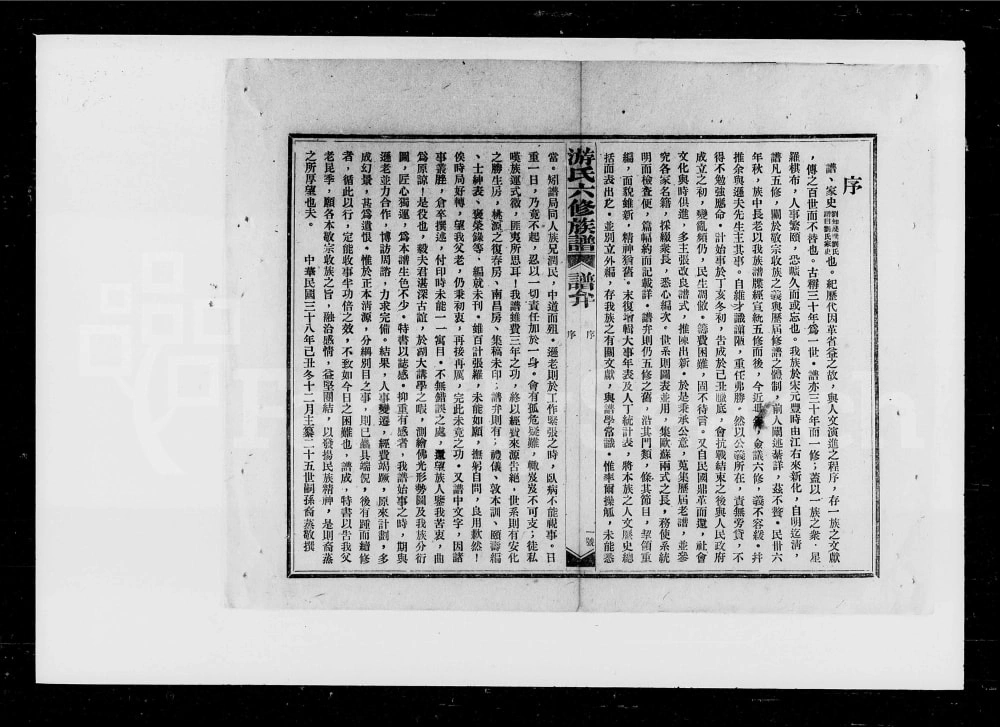 序
譜、家史劉知幾撰劉氏譜曰劉氏家史也。紀歷代因革省益之故，與人文演進之程序，存一族之文獻
，傳之百世而不替也。古稱三十年爲一世。譜亦三十年而一修；蓋以一族之衆，星
羅棋布，人事繁賾，恐曠久而或忘也。我族於宋元豐時由江右來新化，自明迄清，
譜凡五修，關於敬宗收族之義與歷屆修譜之體制，前人闡述綦詳，茲不贅。民卅六
年秋，族中長老以我族譜牒經宣統五修而後，今近 僉議六修，義不容緩。幷
推余與遜夫先生主其事。自維才識謭陋，重任弗勝。然以公義所在，責無旁貸，不
得不勉強應命。計始事於丁亥冬初，告成於己丑臘底，會抗戰結束之後與人民政府
成立之初，變亂頻仍，民生凋敝。籌費困難，固不待言。又自民國鼎革而還，社會
文化與時俱進，多主張改良譜式，推陳出新。於是秉承公意，蒐集歷屆老譜，並參
究各家名籍，採綴衆長，悉心編次。世系則圖表並用，集歐蘇兩式之長，務使系統
明而檢查便，篇幅約而記載詳。譜弁則仍五修之舊，沿其門類，條其節目，挈領重
編，面貌雖新，精神猶舊。末復增輯大事年表及人丁統計表，將本族之人文歷史總
括而表出之。並別立外編，存我族之有關文獻，與譜學常識。惟率爾操觚，未能悉
游氏六修族譜
譜弁
序
序
一號
當。矧譜局同人族兄潤民，中道而殂。遜老則於工作緊張之時，臥病不能視事。日
重一日，乃竟不起，忍以一切責任加於一身。會有孤危疑難，轍岌岌不可支；徒私
嘆族運式微，匪夷所思耳！我譜雖費三年之功，終以經費來源告絕，世系則有安化
之勝生房，桃源之復春房、南昌房、集稿未印；譜弁則有：禮儀、敦本訓、頤壽編
、士紳表、褒榮錄等，編就未刊。雖百計張羅，未能如願，撫躬自問，良用歉然！
俟時局好轉，望我父老，仍秉初衷，再接再厲，完此未竟之功。又譜中文字，因諸
事叢脞，倉卒撰述，付印時未能一一寓目。不無錯誤之處，還望族人鑒我苦衷，曲
爲原諒！是役也，毅夫君湛深古誼，於湖大講學之暇，測繪佛光形勢圖及我族分衍
圖，匠心獨運，爲本譜生色不少。特書以誌感。抑重有感者，我譜始事之時，期與
遜老並力合作，博訪周諮，力求完備。結果，人事變遷，經費竭蹶，原來計劃，多
成幻景，甚爲遺恨。惟於正本清源，分綱別目之事，則已畧具端倪，後有踵而續修
者，循此以行，定能收事半功倍之效，不致如今日之困難也，譜成，特書以告我父
老昆季，願各本敬宗收族之旨，融洽感情，益堅團結，以發揚民族精神，是則裔蒸
之所厚望也夫。
中華民國三十八年己丑冬十二月主纂二十五世嗣孫裔蒸敬撰